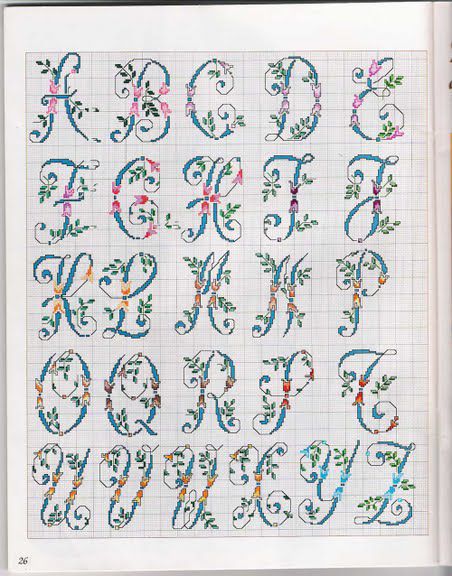 A B C D E
F G H I J
K L M N P
O Q R S T
U V W X Y Z
26